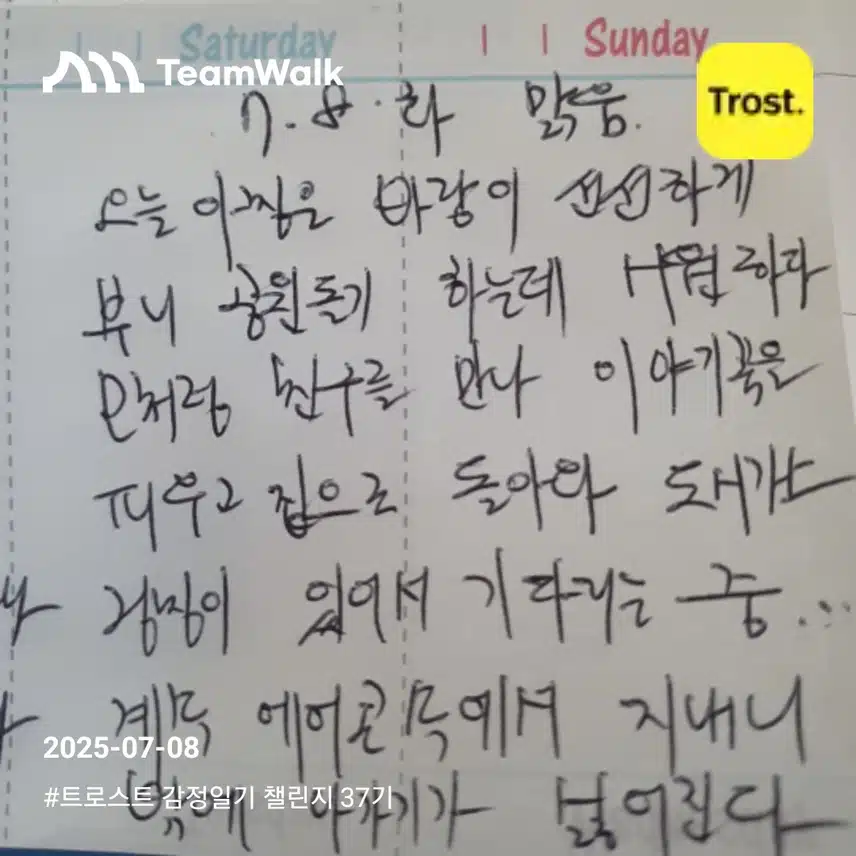 Saturday
Sunday
TeamWalk
Trost.
7. 8. 화 맑음.
오늘 아침은 바람이 선선하게
부니 공원돌기 하는데 사업하다
만처럼 친구를 만나 이야기꽃을
피우고 집으로 돌아와 도시가스
검침이 있어서 기다리는 중...
계속 에어콘 속에서 지내니
2025-07-08
#트로스트 감정일기 챌린지 37기
밖에 나가기가